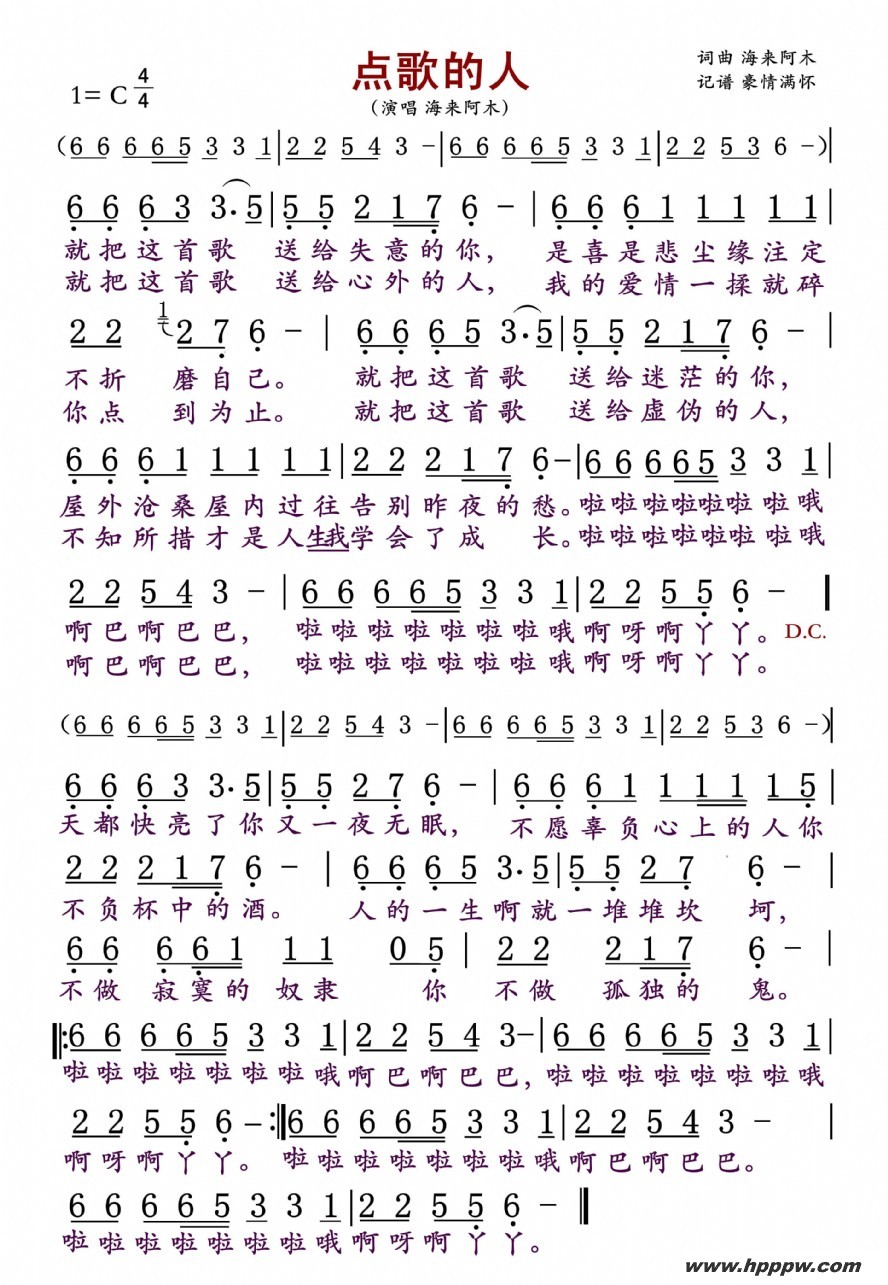 点歌的人
词曲 海来阿木
1= C 4/4
记谱 豪情满怀
（演唱 海来阿木）
（6 6 6 6 5 3 3 1|2 2 5 4 3 －|6 6 6 6 5 3 3 1|2 2 5 3 6 －）|
6 6 6 3 3· 5|5 5 2 1 7 6 －|6 6 6 1 1 1 1 1|
就把这首歌 送给失意的你，是喜是悲尘缘注定
就把这首歌 送给心外的人，我的爱情一揉就碎
2 2 1 2 7 6 －|6 6 6 5 3· 5|5 5 2 1 7 6 －|
不折 磨自己。 就把这首歌 送给迷茫的你，
你点 到为止。 就把这首歌 送给虚伪的人，
6 6 6 1 1 1 1 1|2 2 2 1 7 6 －|6 6 6 6 5 3 3 1|
屋外沧桑屋内过往告别昨夜的愁。啦啦啦啦啦啦啦哦
不知所措才是人生我学会了成 长。啦啦啦啦啦啦啦哦
2 2 5 4 3 －|6 6 6 6 5 3 3 1|2 2 5 5 6 －|
啊巴啊巴巴，啦啦啦啦啦啦啦哦啊呀啊丫丫。D.C.
啊巴啊巴巴，啦啦啦啦啦啦啦哦啊呀啊丫丫。
（6 6 6 6 5 3 3 1|2 2 5 4 3 －|6 6 6 6 5 3 3 1|2 2 5 3 6 －）|
6 6 6 3 3· 5|5 5 2 7 6 －|6 6 6 1 1 1 1 1 5|
天都快亮了你又一夜无眠，不愿辜负心上的人你
2 2 2 1 7 6 －|6 6 6 5 3· 5|5 5 2 7 6 －|
不负杯中的酒。 人的一生啊就一堆堆坎 坷，
6 6 6 6 1 1 1 0 5|2 2 2 1 7 6 －|
不做 寂寞的 奴隶 你 不做 孤独的 鬼。
‖:6 6 6 6 5 3 3 1|2 2 5 4 3 －|6 6 6 6 5 3 3 1|
啦啦啦啦啦啦啦哦啊巴啊巴巴，啦啦啦啦啦啦啦哦
2 2 5 5 6 －:‖6 6 6 6 5 3 3 1|2 2 5 4 3 －|
啊呀啊丫丫。啦啦啦啦啦啦啦哦啊巴啊巴巴。
6 6 6 6 5 3 3 1|2 2 5 5 6 －‖
啦啦啦啦啦啦啦哦啊呀啊丫丫。
www.hpppw.com